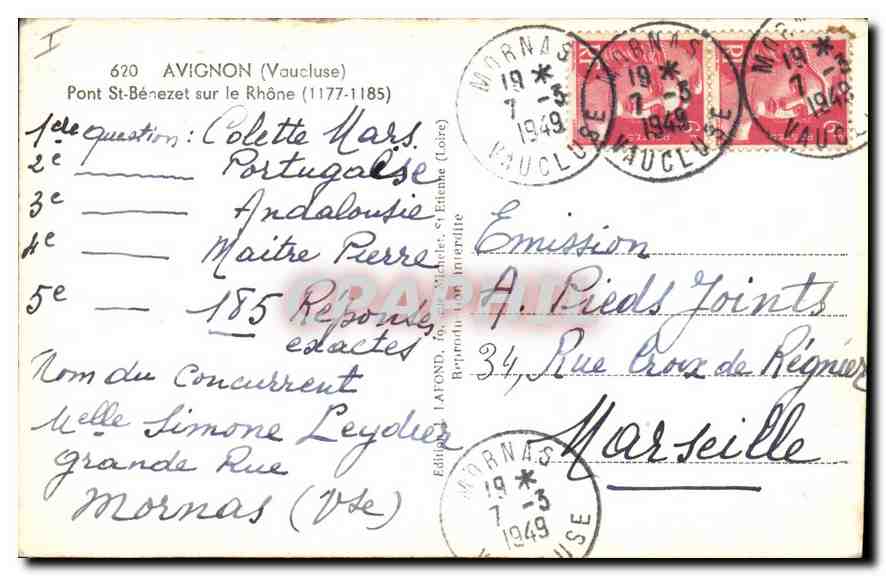 I
620 AVIGNON (Vaucluse)
Pont St-Bénezet sur le Rhône (1177-1185)
1ère question : Colette Mars.
2e Portugaise
3e Andalousie
4e Maitre Pierre
5e 185 Réponses
exactes
Nom du Concurrent
Melle Simone Leydier
Grande Rue
Mornas (Vse)
Editions LAFOND, Michelet, St Etienne (Loire)
Reproduction interdite
MORNAS
19 *
7 -3
1949
VAUCLUSE
MORNAS
19 *
7 -3
1949
VAUCLUSE
19 *
7 -3
1949
Emission
A. Pieds Joints
34, Rue Croix de Régnier
Marseille
MORNAS
19 *
7 -3
1949